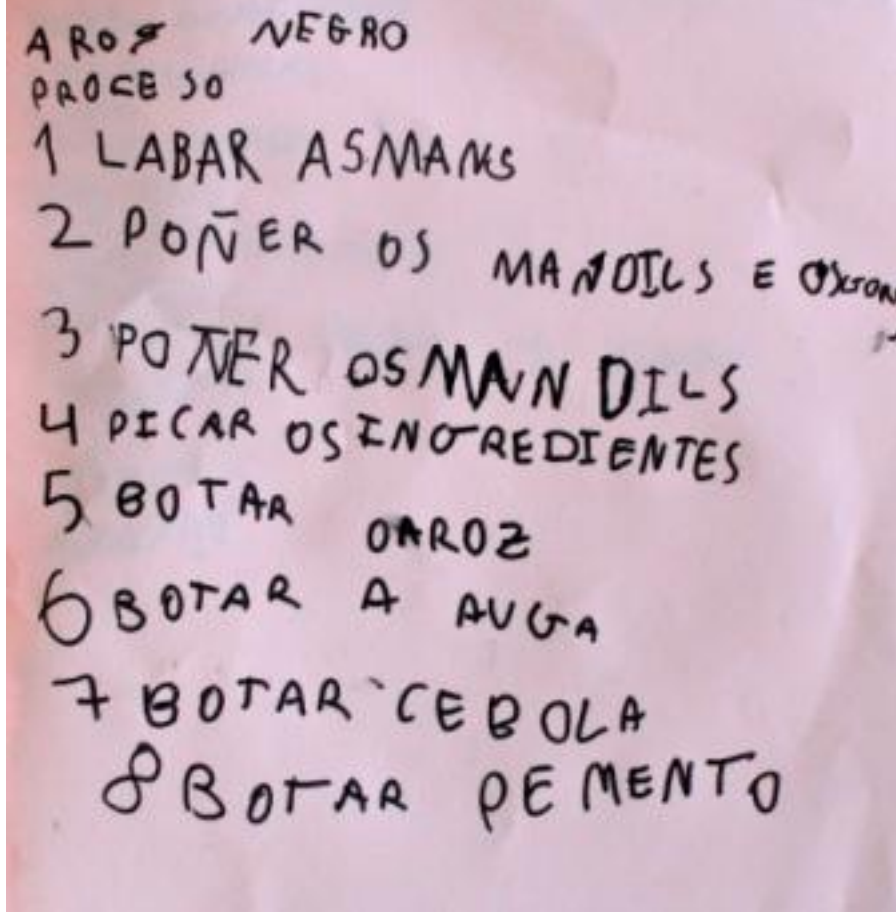 AROZ NEGRO
PROCESO
1 LABAR ASMANS
2 POÑER OS MANDILS E
3 POÑER OSMAN DILS
4 PICAR OSINGREDIENTES
5 BOTAR OAROZ
6 BOTAR A AUGA
7 BOTAR CEBOLA
8 BOTAR PEMENTO